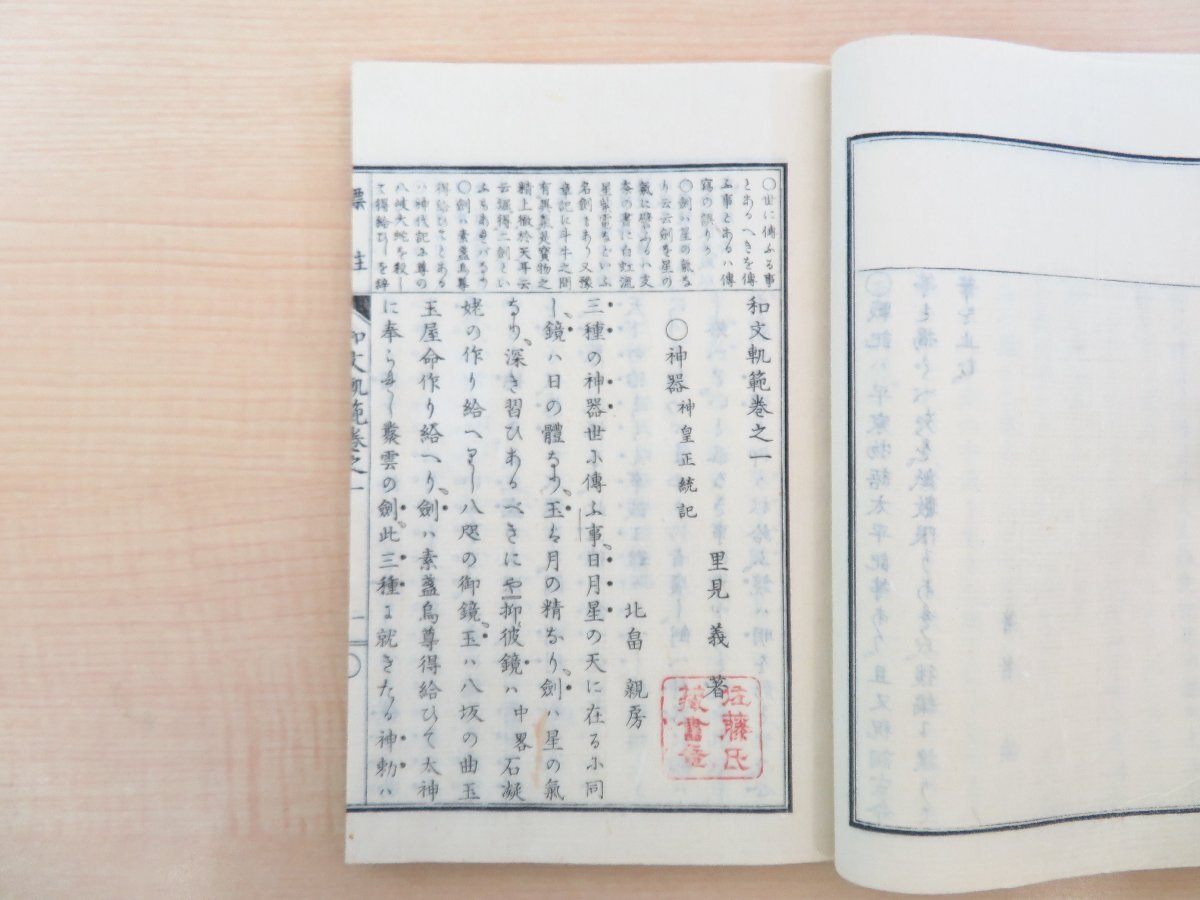 和文軌範卷之一
里見義著
〇神器 神皇正統記
北畠親房
三種の神器世ふ傳ふ事日月星の天に在る小同
し鏡ハ日の體なり玉は月の精なり劍ハ星の氣
なり深き習ひあるべきにや抑彼鏡ハ中畧石凝
姥の作り給へりし八咫の御鏡玉ハ八坂の曲玉
玉屋命作り給へり劍ハ素盞烏尊得給ひて太神
に奉られし叢雲の劍此三種は就きたる神勅ハ
〇世に傳ふる事
とあるへきを傳
ふ事とあるハ傳
寫の誤りか
〇劍ハ星の氣な
り云云劍を星の
氣に
奏の書に白虹流
星紫電などいふ
名劍もあり又豫
章記に斗牛之間
有異氣是寶物之
精上徹於天耳云
云掘得二劍とい
ふもあれバなり
〇劍ハ素盞烏尊
得給ひてとある
ハ神代記ふ尊の
八岐大蛇を殺し
て得給ひしを
標註
和文軌範卷之一
一
佐藤氏
藏書章